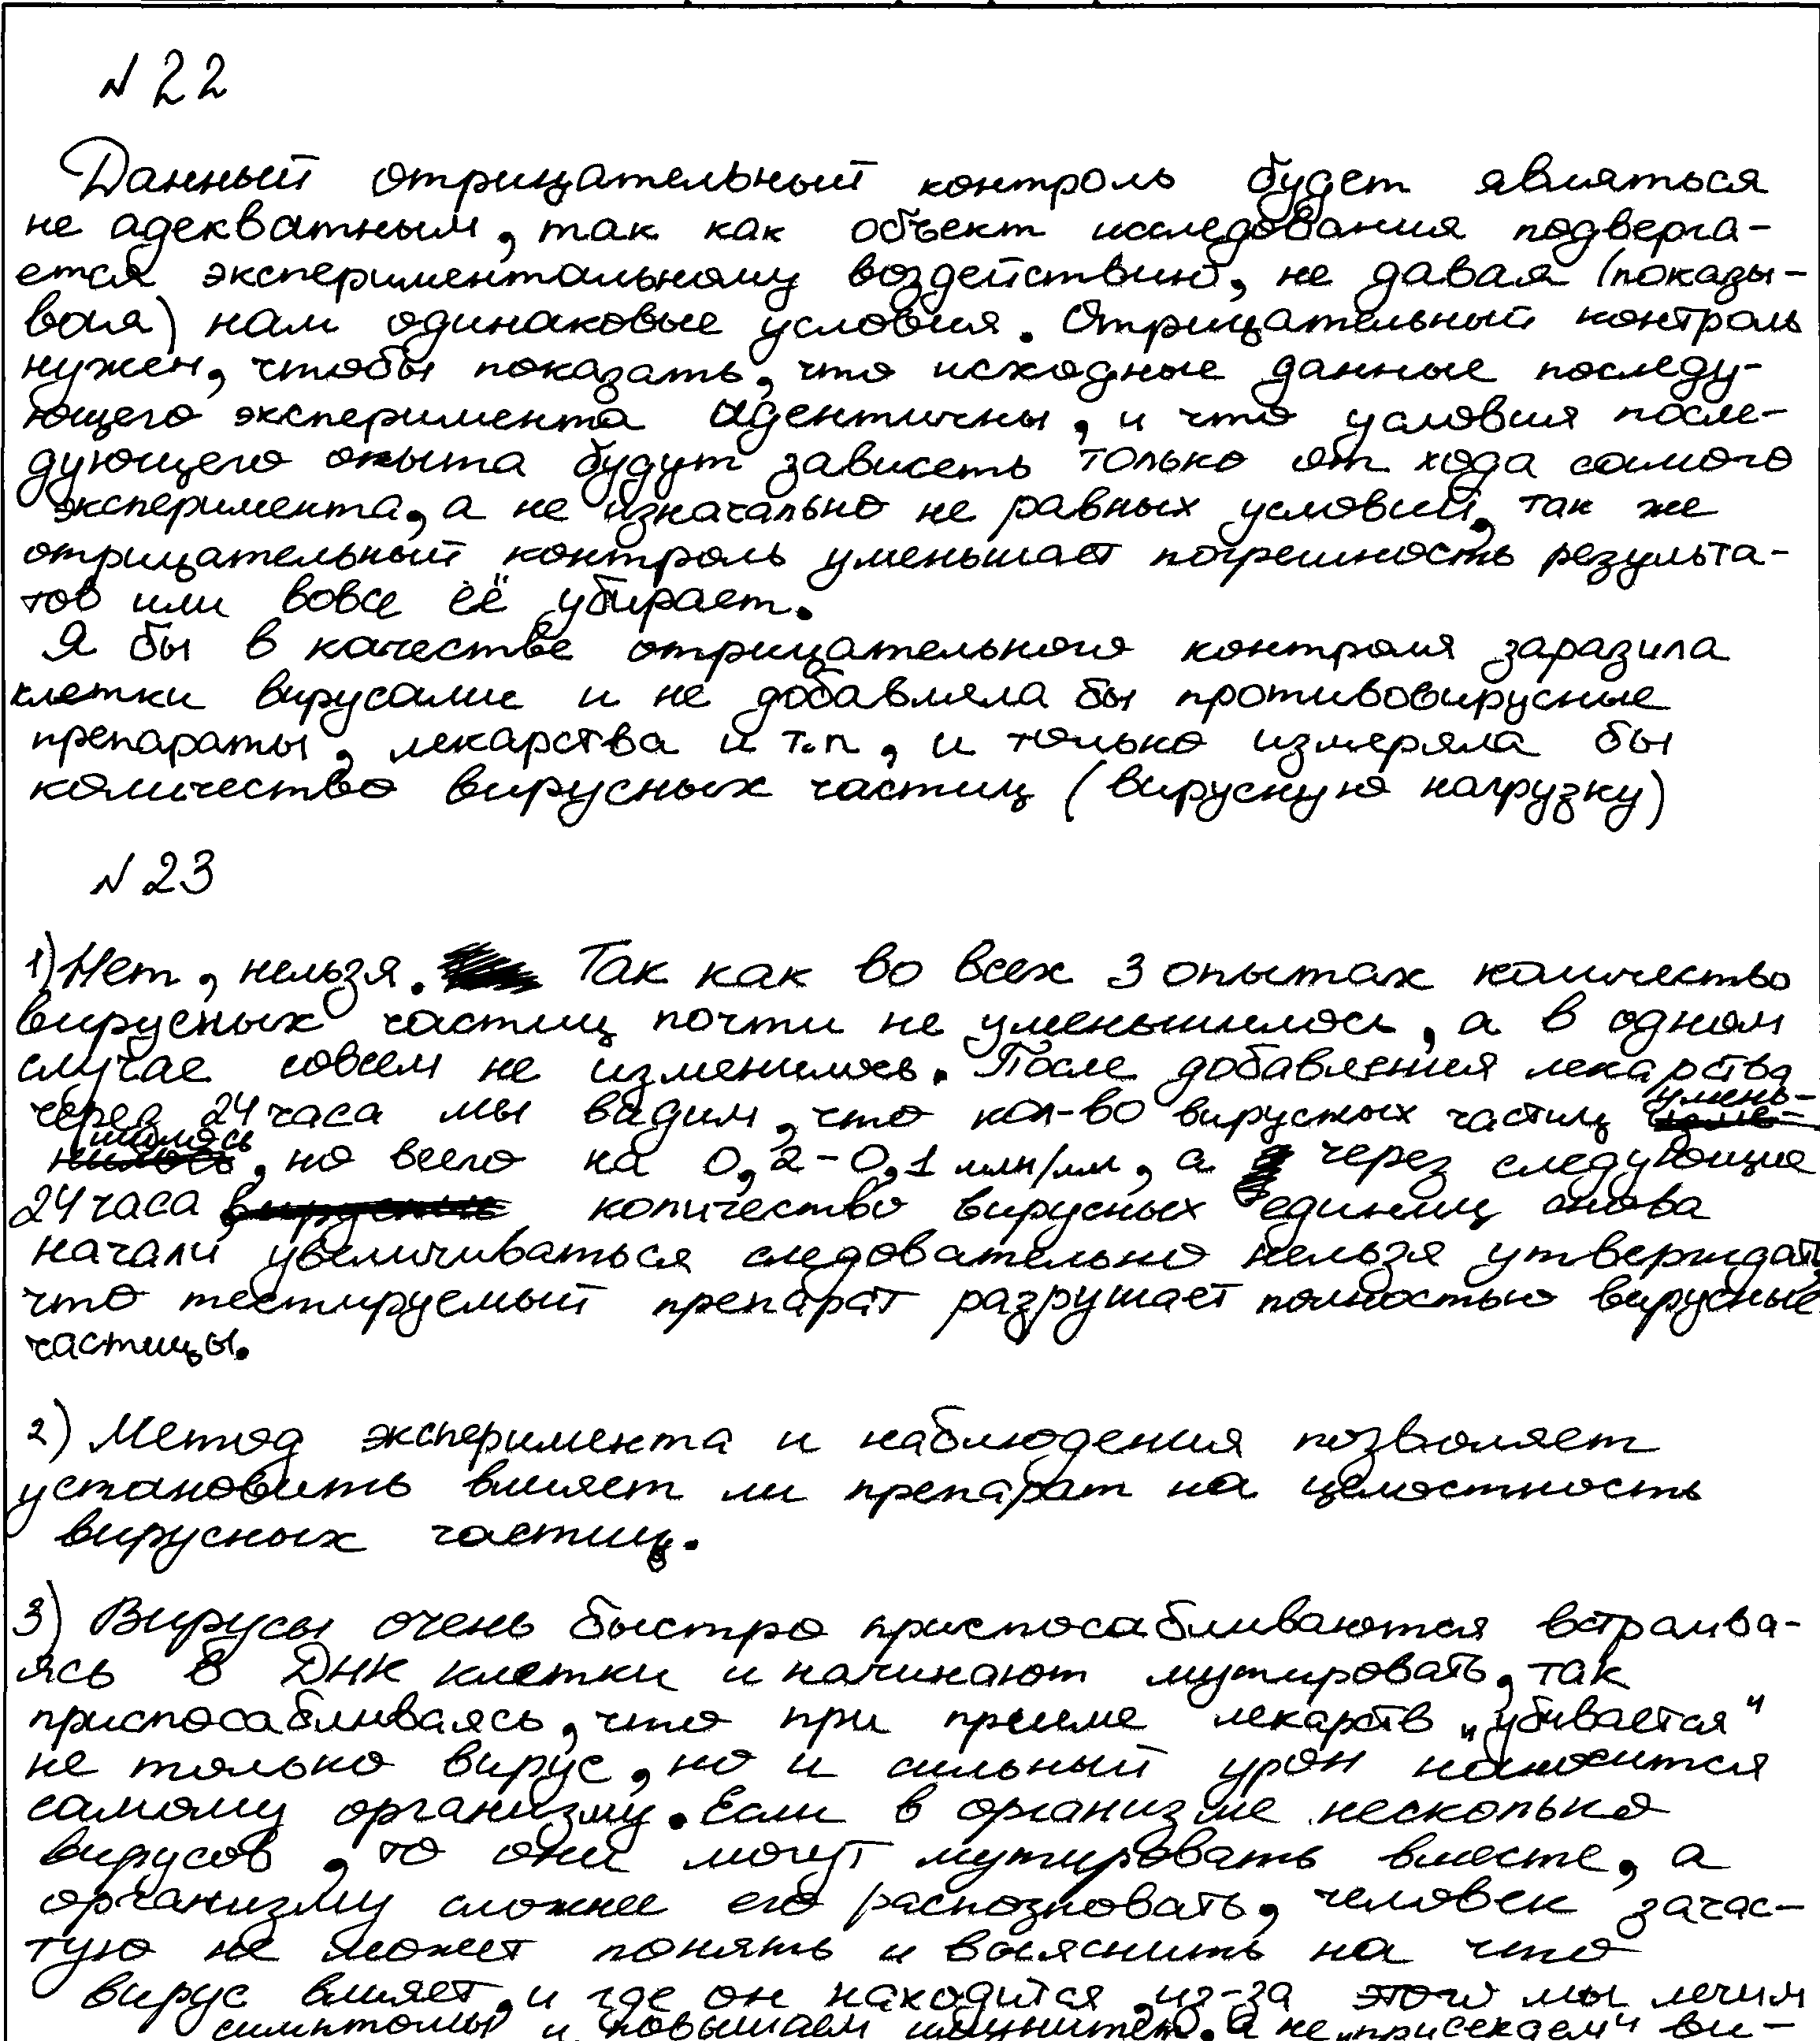 N 22
Данный отрицательный контроль будет являться
не адекватным, так как объект исследования подверга-
ется экспериментальному воздействию, не давая (показы-
вая) нам одинаковые условия. Отрицательный контроль
нужен, чтобы показать, что исходные данные последу-
ющего эксперимента идентичны, и что условия после-
дующего опыта будут зависеть только от хода самого
эксперимента, а не изначально не равных условий, так же
отрицательный контроль уменьшает погрешность результа-
тов или вовсе её убирает.
Я бы в качестве отрицательного контроля заразила
клетки вирусами и не добавляла бы противовирусные
препараты, лекарства и т.п, и только измеряла бы
количество вирусных частиц (вирусную нагрузку)
N 23
1) Нет, нельзя. Так как во всех 3 опытах количество
вирусных частиц почти не уменьшилось, а в одном
случае совсем не изменилось. После добавления лекарства
через 24 часа мы видим, что кол-во вирусных частиц умень-
шилось, но всего на 0,2-0,1 млн/мл, а через следующие
24 часа количество вирусных единиц снова
начали увеличиваться следовательно нельзя утверждать
что тестируемый препарат разрушает полностью вирусные
частицы.
2) Метод эксперимента и наблюдения позволяет
установить влияет ли препарат на целостность
вирусных частиц.
3) Вирусы очень быстро приспосабливаются встраива-
ясь в ДНК клетки и начинают мутировать, так
приспосабливаясь, что при приеме лекарств „убивается"
не только вирус, но и сильный урон наносится
самому организму. Если в организме несколько
вирусов, то они могут мутировать вместе, а
организму сложнее его распозновать, человек зачас-
тую не может понять и выяснить на что
вирус влияет, и где он находится, из-за этого мы лечим
симптомы и повышаем иммунитет, а не „присекаем" ви-